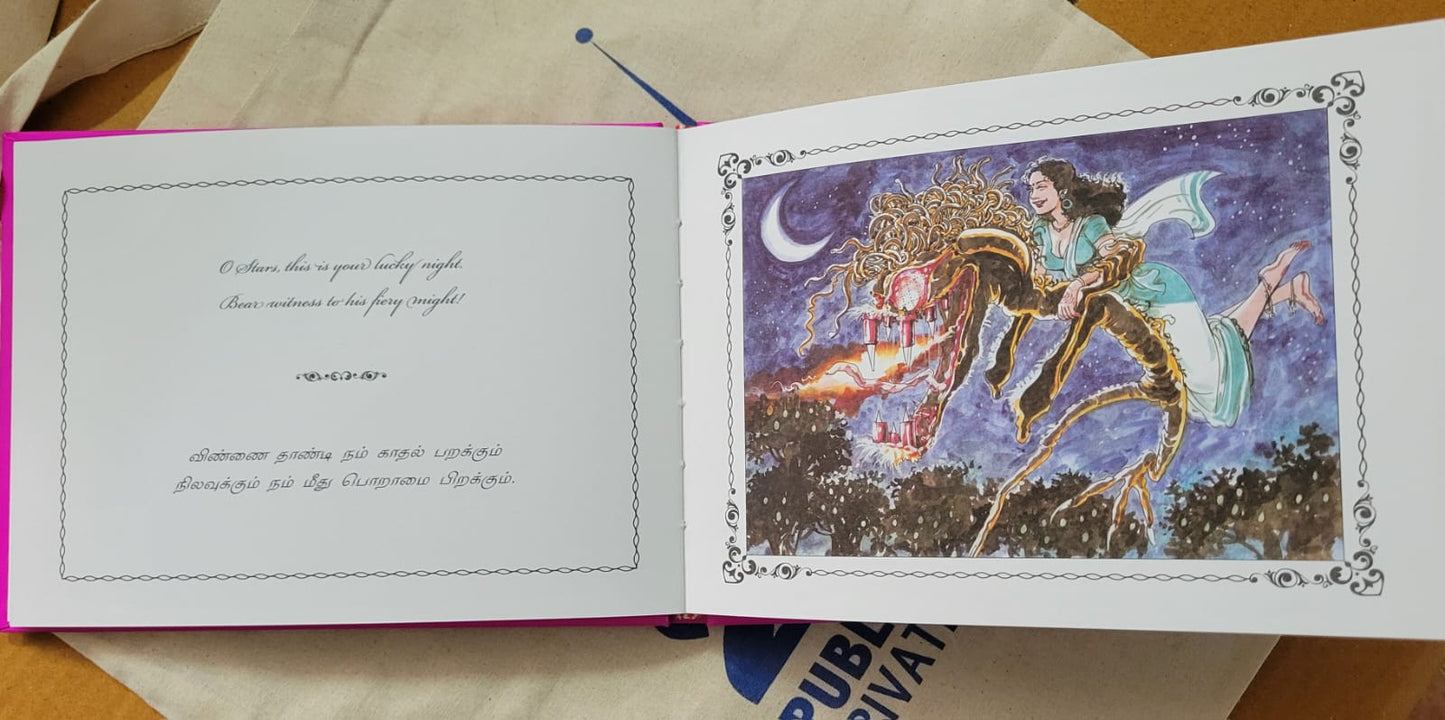 O Stars, this is your lucky night.
Bear witness to his fiery might!
விண்ணை தாண்டி நம் காதல் பறக்கும்
நிலவுக்கும் நம் மீது பொறாமை பிறக்கும்.